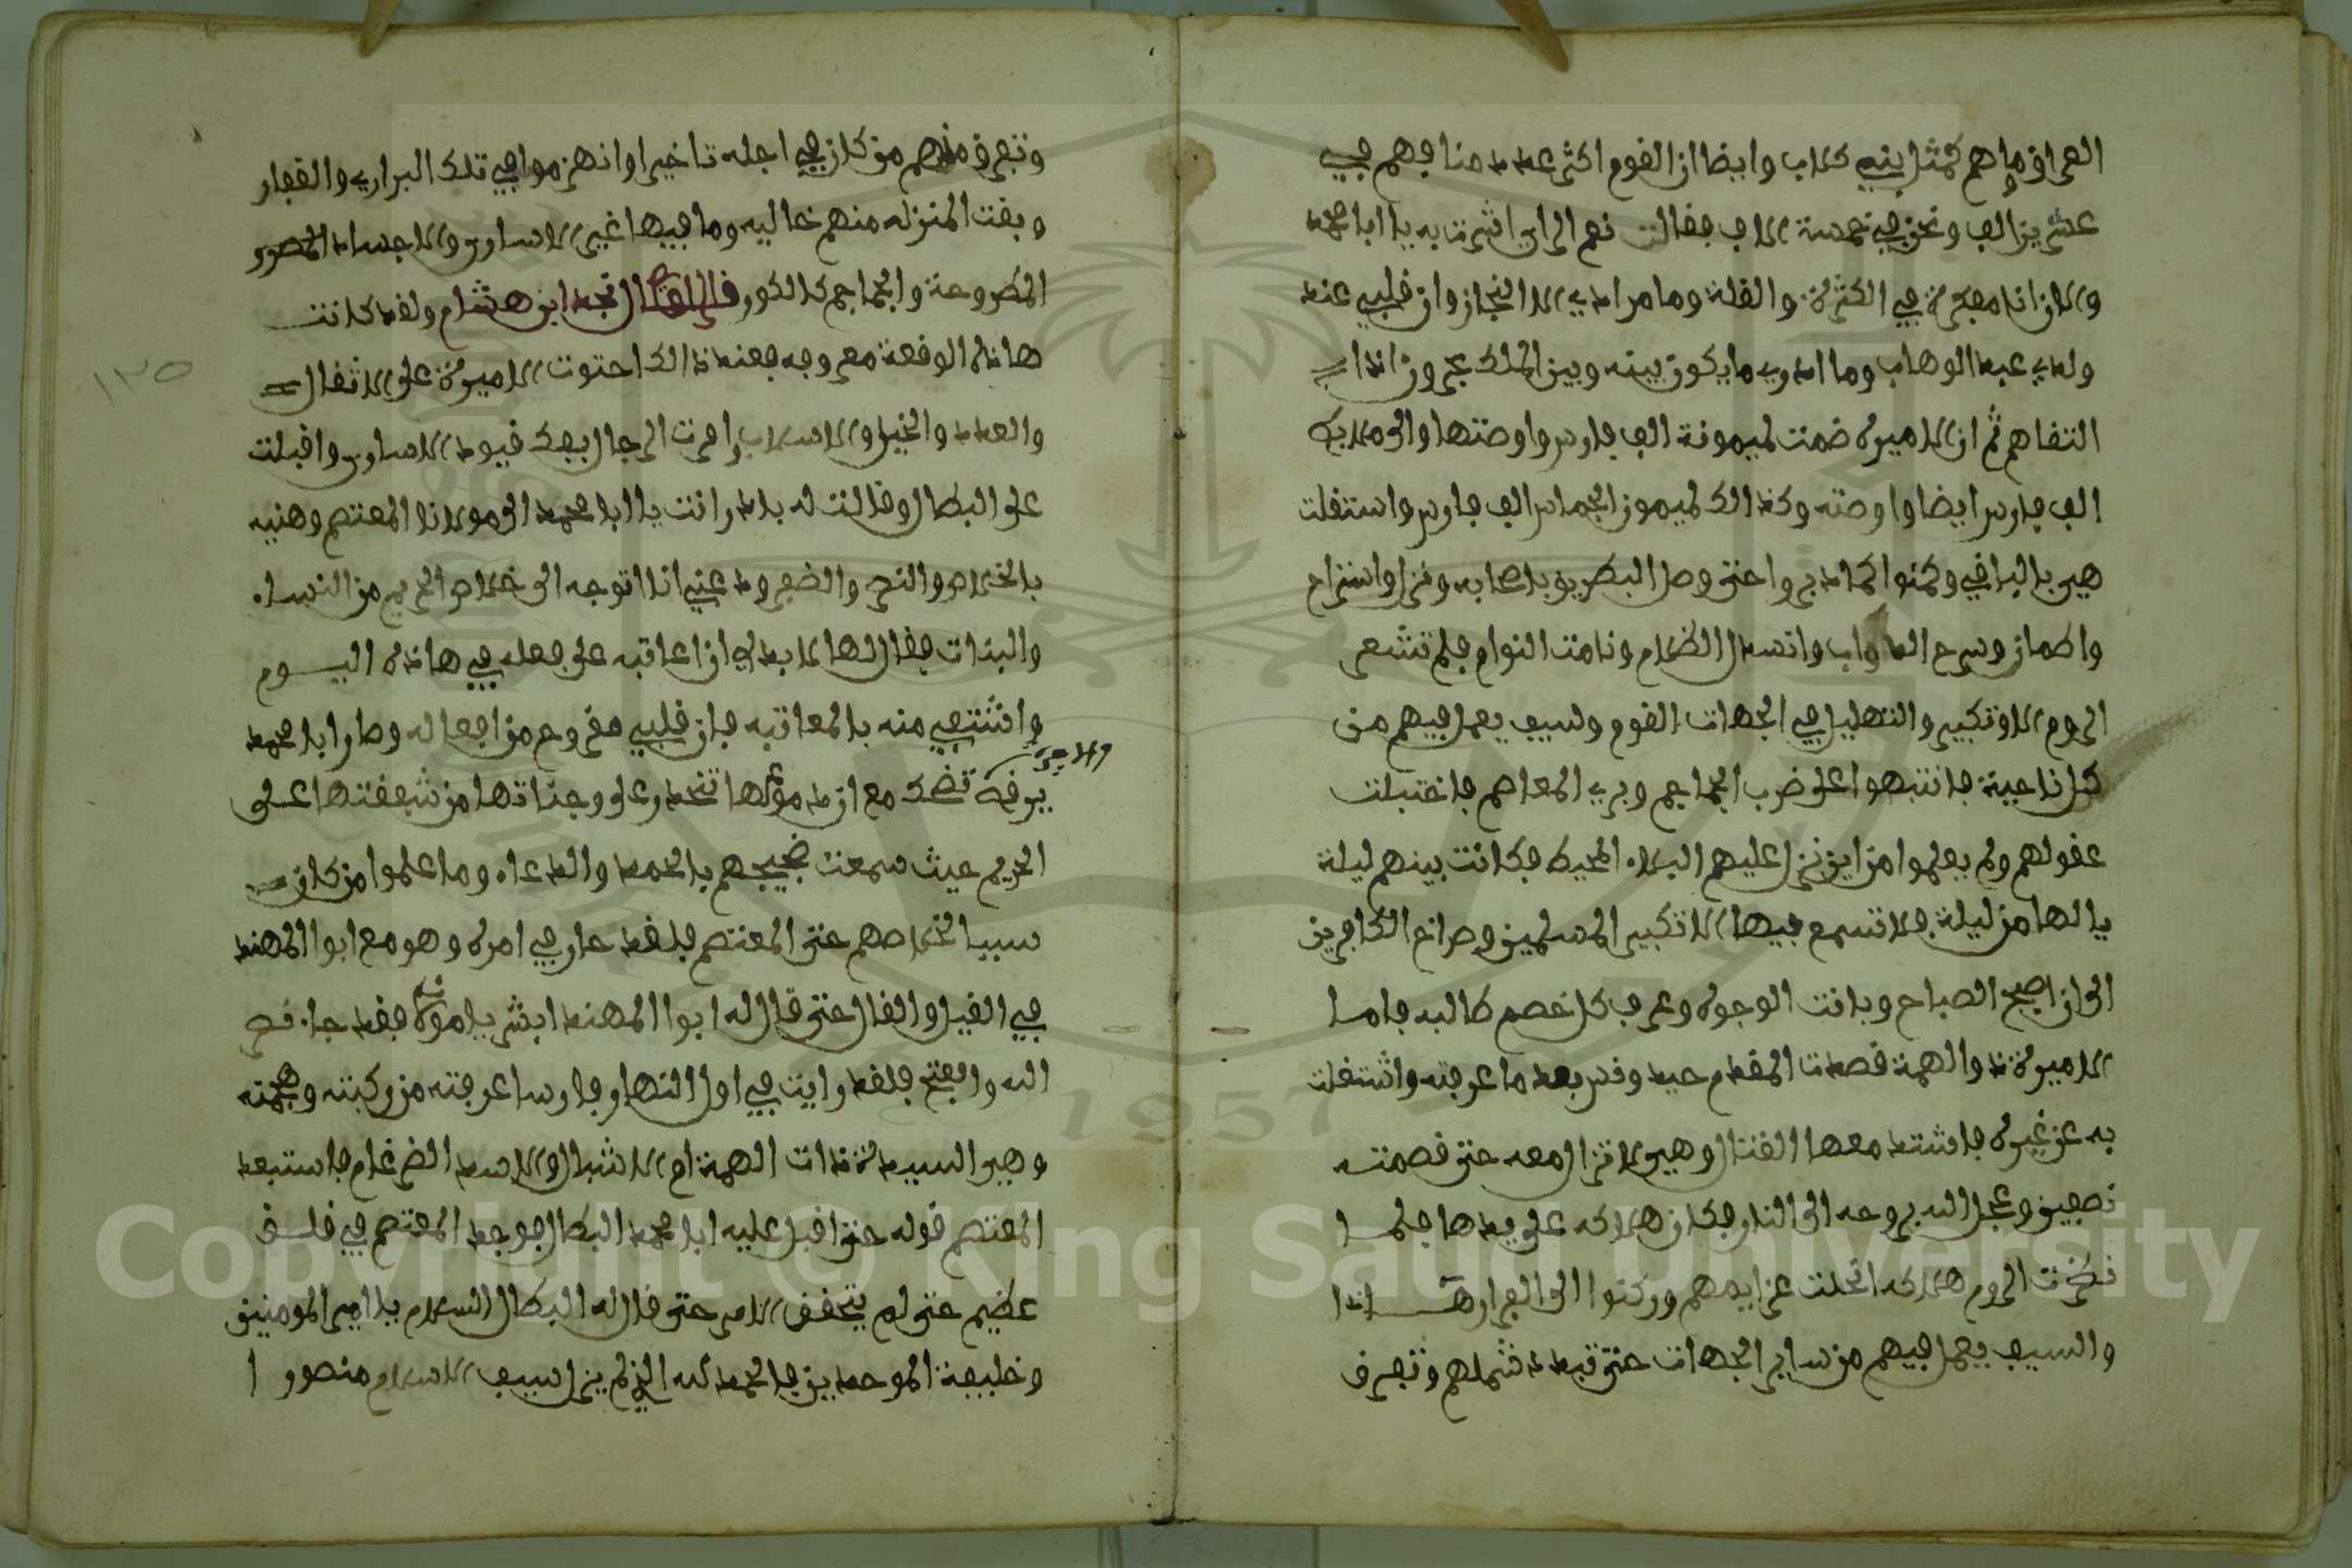 العراق وما هم كمثل بني كلاب وايضا ان القوم اكثر عددا منا فهم في
عشرين الف ونحن في خمسة الاف فقالت نعم الراي اشرت به يا ابا محمد
والان انا مفكرة في الكثرة والقلة وما مرادي الا النجاز وان قلبي عند
ولدي عبد الوهاب وما ادري ما يكون بينه وبين الملك بحرون اذا
التقاهم ثم ان الاميرة ضمت لميمونة الف فارس واوصتها والى ملابك
الف فارس ايضا واوصته وكذالك لميمون الجماس الف فارس واستقلت
هي بالباقي وكمنوا كما دبروا حتى وصل البطريق باصحابه ونزل واستراح
واطمان وسرح الدواب وانسدل الظلام ونامت النوام فلم تشعر
الروم الا وتكبير والتهليل في الجهات القوم والسيف يعمل فيهم من
كل ناحية فانتبهوا على ضرب الجماجم وبري المعاصم فاختبلت
عقولهم ولم يعلموا من اين نزل عليهم البلاء المحيط فكانت بينهم ليلة
يالها من ليلة فلا تسمع فيها الا تكبير المسلمين وصراخ الكافرين
الى ان اصبح الصباح وبانت الوجوه وعرف كل خصم طالبه فاما
الاميرة ذوالهمة قصدت المقدم حيدوفس بعد ما عرفته واشتغلت
به عن غيره فاشتد معها القتال وهي لا تزال معه حتى قصمته
نصفين وعجل الله بروحه الى النار فكان هلاكه على يدها فلما
نظرت الروم هلاكه انحلت عزايمهم وركنوا الى الفرار هذا
والسيف يعمل فيهم من ساير الجهات حتى تبدد شملهم وتفرق
وتفرق منهم من كان في اجله تاخير او انهزموا في تلك البراري والقفار
وبقت المنزله منهم خاليه وما فيها غير الاساور والاجساد
المطروحة والجماجم كالكور قال نجد ابن هشام ولقد كانت
هاذه الوقعة معروفه فعند ذالك احتوت الاميرة على الاثقال
والعدد والخيل والاسلاب وامرت الرجال بفك قيود الاساور واقبلت
على البطال وقالت له بادر انت يا ابا محمد الى مولانا المعتصم وهنيه
بالخلاص والنصر والضفر ودعني انا اتوجه الى خلاص الحريم من النساء
والبنات فقال لها لا بد لي ان اعاقبه على فعله في هاذه اليوم
واشتفي منه بالمعاتبه فان قلبي مقروح من افعاله وصار ابا محمد
والاميرة
يرفه تضحك مع ان دموعها تنحدر على وجناتها من شفقتها على
الحريم حيث سمعت ضجيجهم بالحمد والدعاء وما علموا من كان
سببا لخلاصهم حتى المعتصم فلقد حار في امره وهو مع ابوا المهند
في القيل والقال حتى قال له ابوا المهند ابشر يا مولاي فقد جاء نصر
الله والفتح فلقد رايت في اول النهار فارسا عرفته من ركبته وهجمته
وهي السيدة ذات الهمة ام الاشبال والاسد الضرغام فاستبعد
المعتصم قوله حتى اقبل عليه ابا محمد البطال فوجد المعتصم في قلق
عظيم حتى لم يتحقق الامر حتى قال له البطال السلام يا امير المومنين
وخليفة الموحدين فالحمد لله الذي لم يزل سيف الاسلام منصورا
١٣٥
Copyright © King Saud University
1957